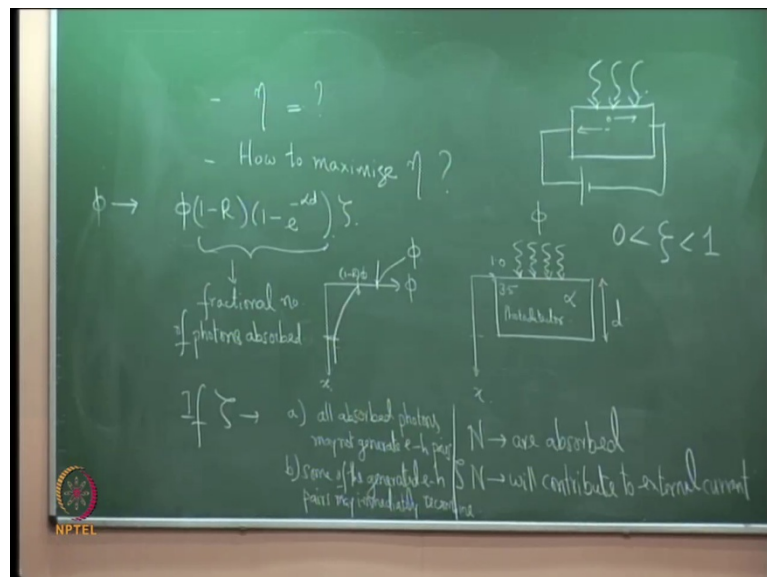 - η = ?
- How to maximise η ?
ϕ → ϕ(1-R)(1-e^{-αd}) ζ.
fractional no.
of photons absorbed
(1-R)ϕ
ϕ
ϕ
x.
ϕ
0 < ξ < 1
1.0
3.5
α
Photodetector
d
x.
If ζ →
a) all absorbed photons
may not generate e-h pairs
b) some of the generated e-h
pairs may immediately recombine
N → are absorbed
ζ N → will contribute to external current
NPTEL